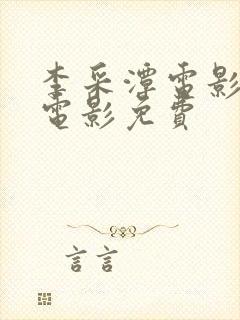 李采潭電影
電影免費
言言